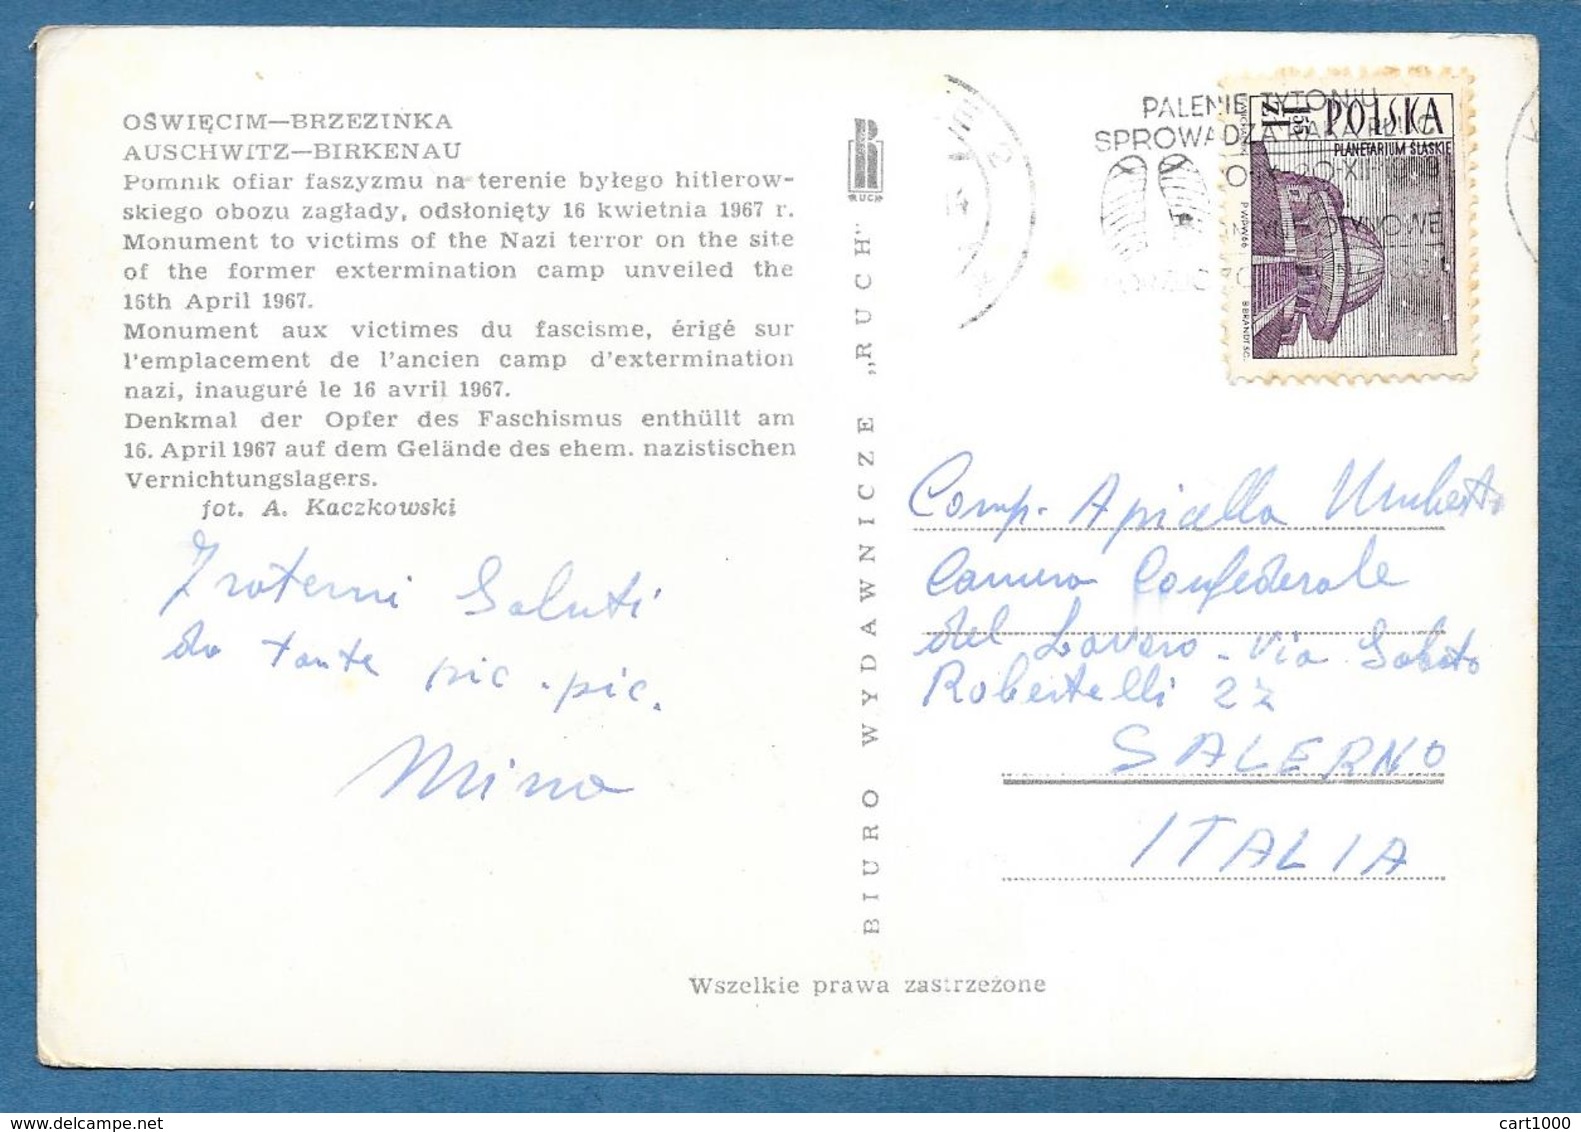 OŚWIĘCIM—BRZEZINKA
AUSCHWITZ—BIRKENAU
Pomnik ofiar faszyzmu na terenie byłego hitlerow-
skiego obozu zagłady, odsłonięty 16 kwietnia 1967 r.
Monument to victims of the Nazi terror on the site
of the former extermination camp unveiled the
16th April 1967.
Monument aux victimes du fascisme, érigé sur
l'emplacement de l'ancien camp d'extermination
nazi, inauguré le 16 avril 1967.
Denkmal der Opfer des Faschismus enthüllt am
16. April 1967 auf dem Gelände des ehem. nazistischen
Vernichtungslagers.
fot. A. Kaczkowski
Fraterni Saluti
da tante pic.pic.
Mina
RUCH
BIURO WYDAWNICZE „RUCH"
PALENIE TYTONIU
SPROWADZA RAKA PŁUC
POLSKA
1,55 ZŁ
PLANETARIUM ŚLĄSKIE
P.W.P.W. 66
B.BRANDT SC.
Comp. Apicella Umberto
Camera Confederale
del Lavoro - Via Sabato
Robertelli 27
SALERNO
ITALIA
Wszelkie prawa zastrzeżone
cart1000